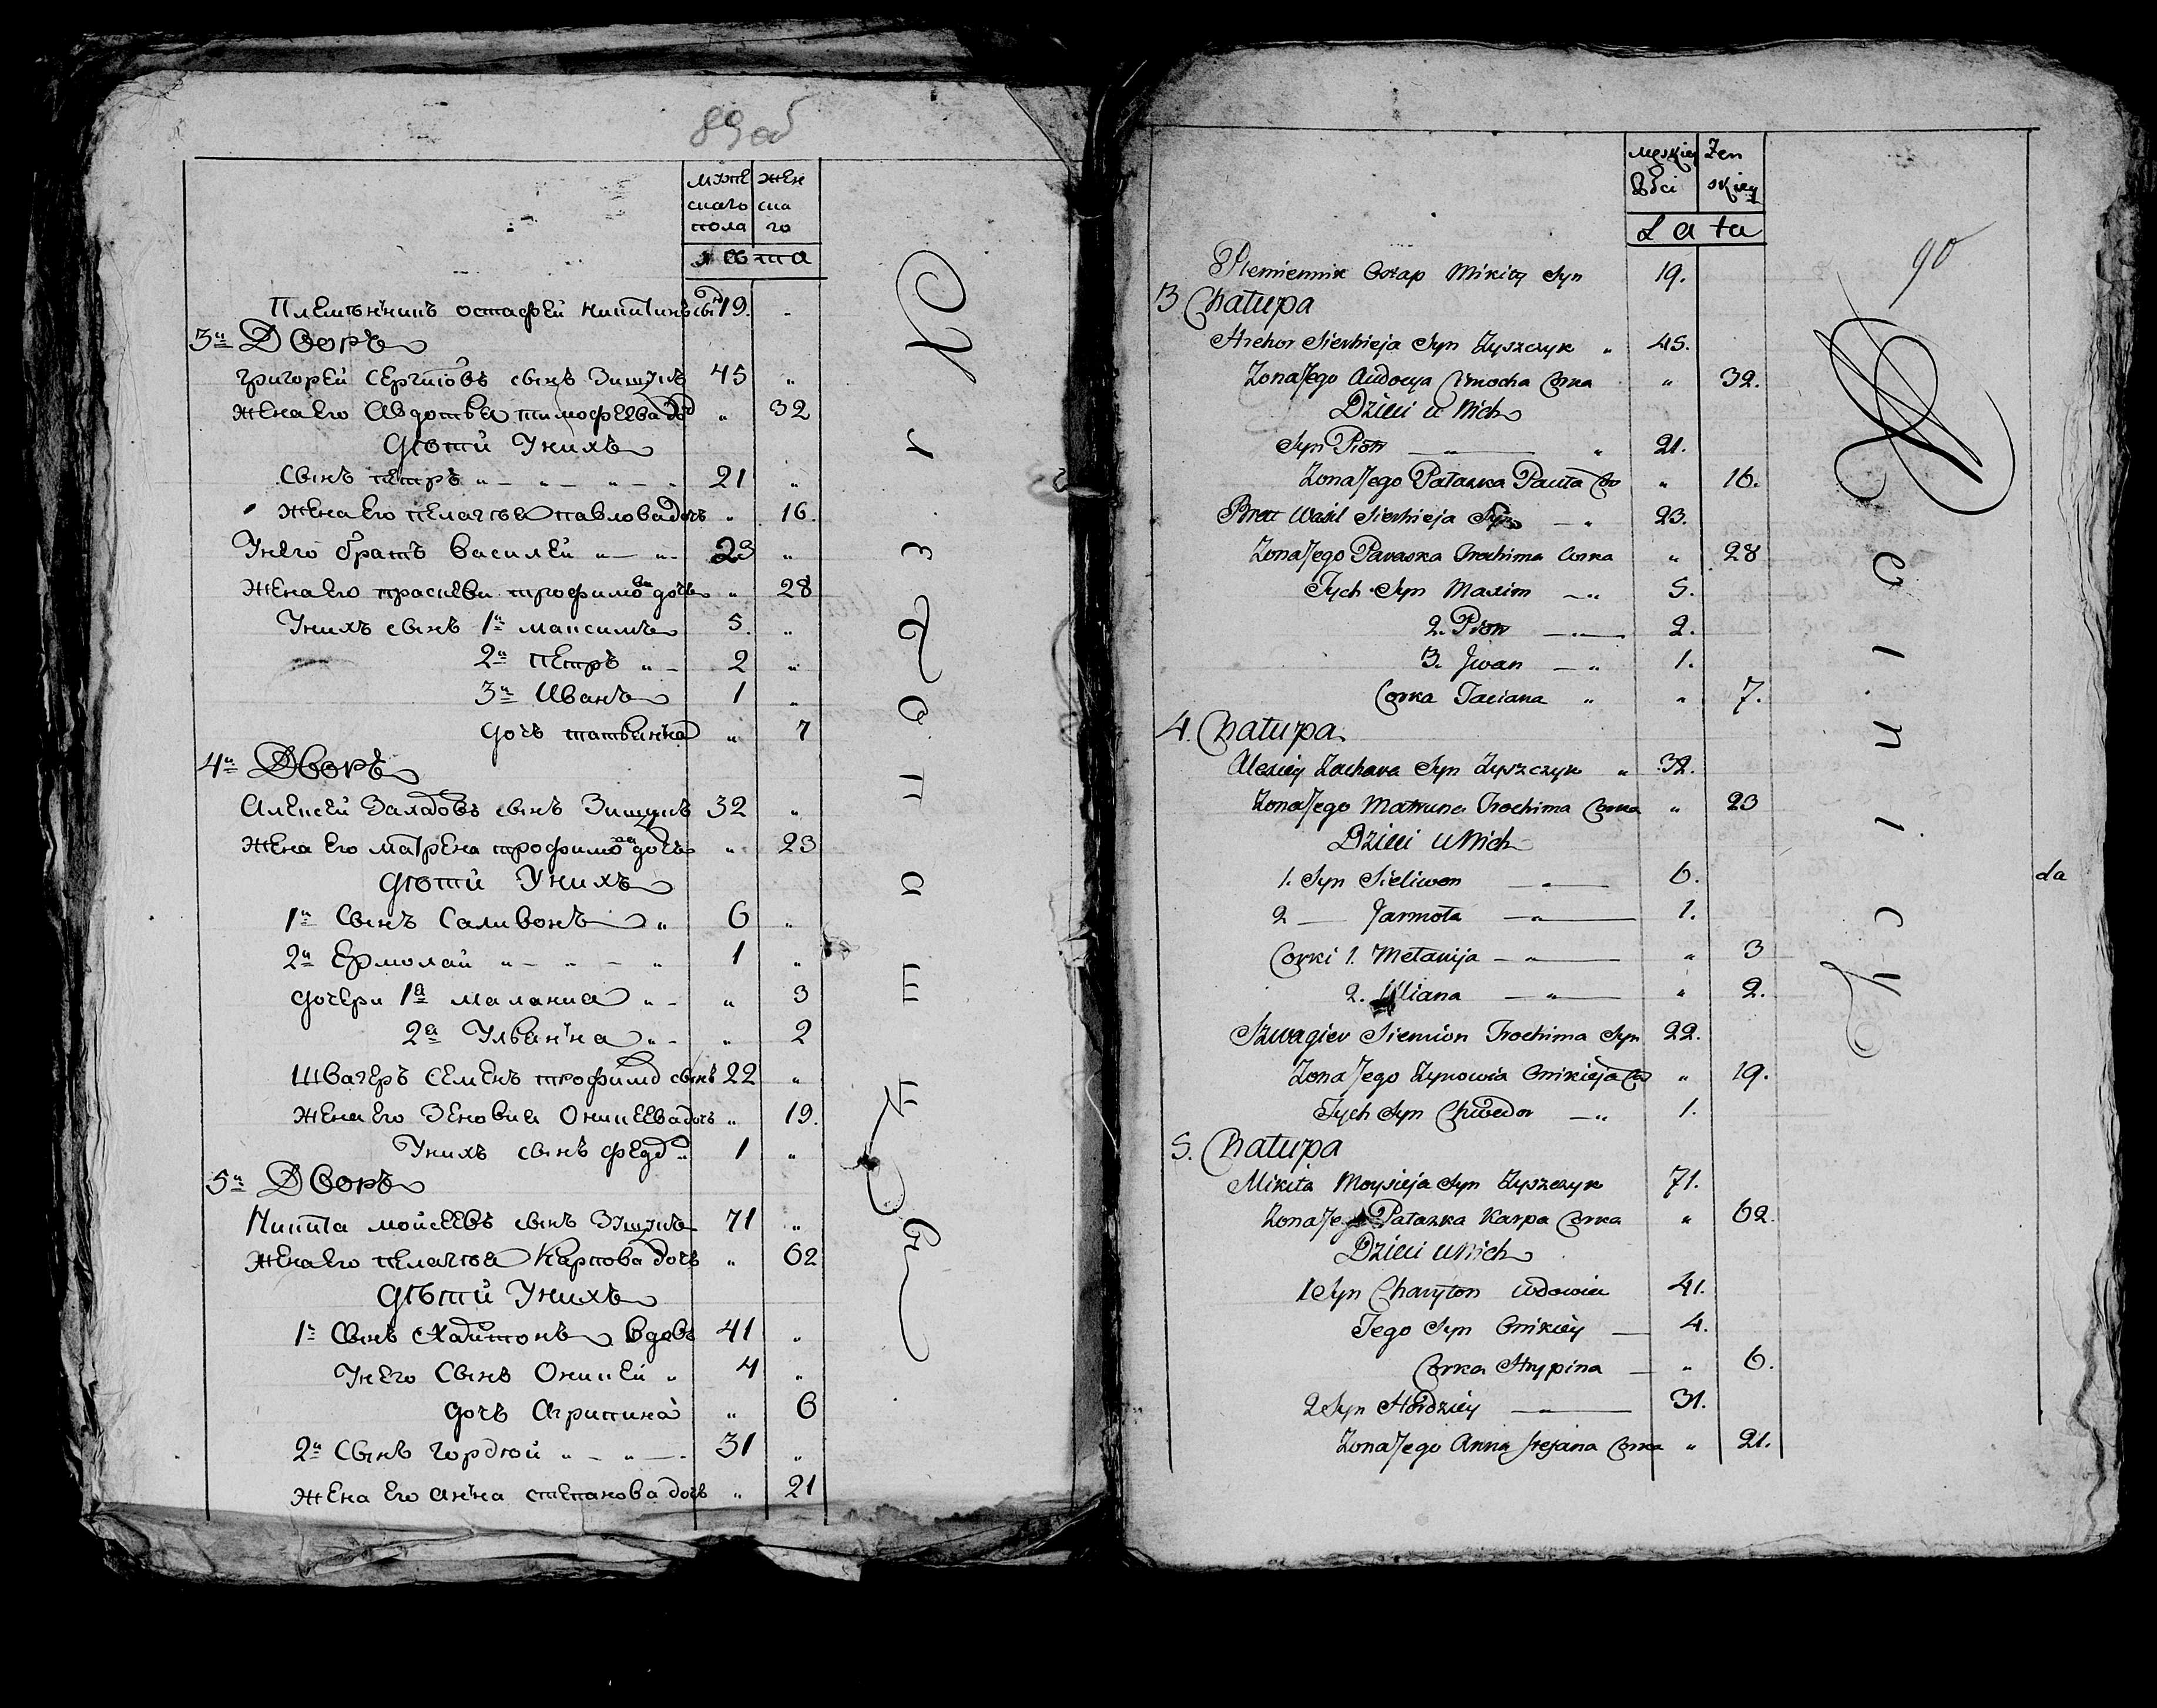 89 об
муже
скаго
пола
жен
ска
го
лѣта
Племянникъ остафей никитинъ сынъ 19. -
3й Дворъ
григорей Сергиовъ сынъ Зищукъ 45 "
Жена Его Авдотья тимофеева дочь " 32
Дѣти У нихъ
Сынъ петръ " - " - " - " 21 "
жена его пелагѣя павлова дочь " 16.
У него братъ василей " — " - 23 "
жена его праскевия трофимова дочь " 28
У нихъ сынъ 1й максимъ 5. "
2й петръ " - 2 "
3й Иванъ 1 "
дочь татьянна " 7
4й Дворъ
Алексей Захаровъ сынъ Зищукъ 32 "
жена Его матрена трофимова дочь " 23
Дѣти У нихъ
1й Сынъ Саливонъ " 6 "
2й Ермолай " - " - " 1 "
дочери 1а малания " - " 3
2а Ульянна " - " 2
Швагеръ семенъ трофимов сынъ 22 "
жена Его Зеновия Оникеева дочь " 19.
У нихъ сынъ федор " 1 "
5й Дворъ
Никита мойсеевъ сынъ Зищукъ 71 "
жена его пелагѣя Карпова дочь " 62
Дѣти У нихъ
1й Сынъ Харитонъ вдовъ 41 "
У него Сынъ Оникей " 4 "
дочь Агрипина " 6
2й Сынъ гордѣй " - " - 31 "
жена его анна степанова дочь " 21
90
męskiey
płci
Żen
skiey
Lata
Plemiennik Ostap Mikity Syn 19.
3 Chałupa
Hrehor Sierhieja Syn Zyszczyk " 45.
Zona Jego Audocya Cimocha Corka " 32.
Dzieci u Nich
Syn Piotr — " — " 21.
Zona Jego Pałaszka Pauła Cor " 16.
Brat Wasil Sierhieja Syn — " 23.
Zona Jego Paraska Trochima Corka " 28
Tych Syn Maxim — " 5.
2. Piotr — " — 2.
3. Jwan — " 1.
Corka Taciana " " 7.
4. Chałupa
Alexiey Zachara Syn Zyszczyk " 32.
Zona Jego Matruna Trochima Corka " 23
Dzieci u Nich
1. Syn Sieliwon — " — 6.
2 — Jarmoła — " — 1.
Corki 1. Mełanija — " — " 3
2. Uliana — " — " 2.
Szwagier Siemion Trochima Syn 22.
Zona Jego Zynowia Onikieja Cor " 19.
Tych Syn Chwedor — " 1.
5. Chałupa
Mikita Moysieja Syn Zyszczyk 71.
Zona Jego Pałaszka Karpa Corka " 62.
Dzieci u Nich
1 Syn Charyton wdowiec 41.
Jego Syn Onikiey — 4.
Corka Hrypina — " 6.
2 Syn Hordziey — " — 31.
Zona Jego Anna Stefana Corka " 21.
da